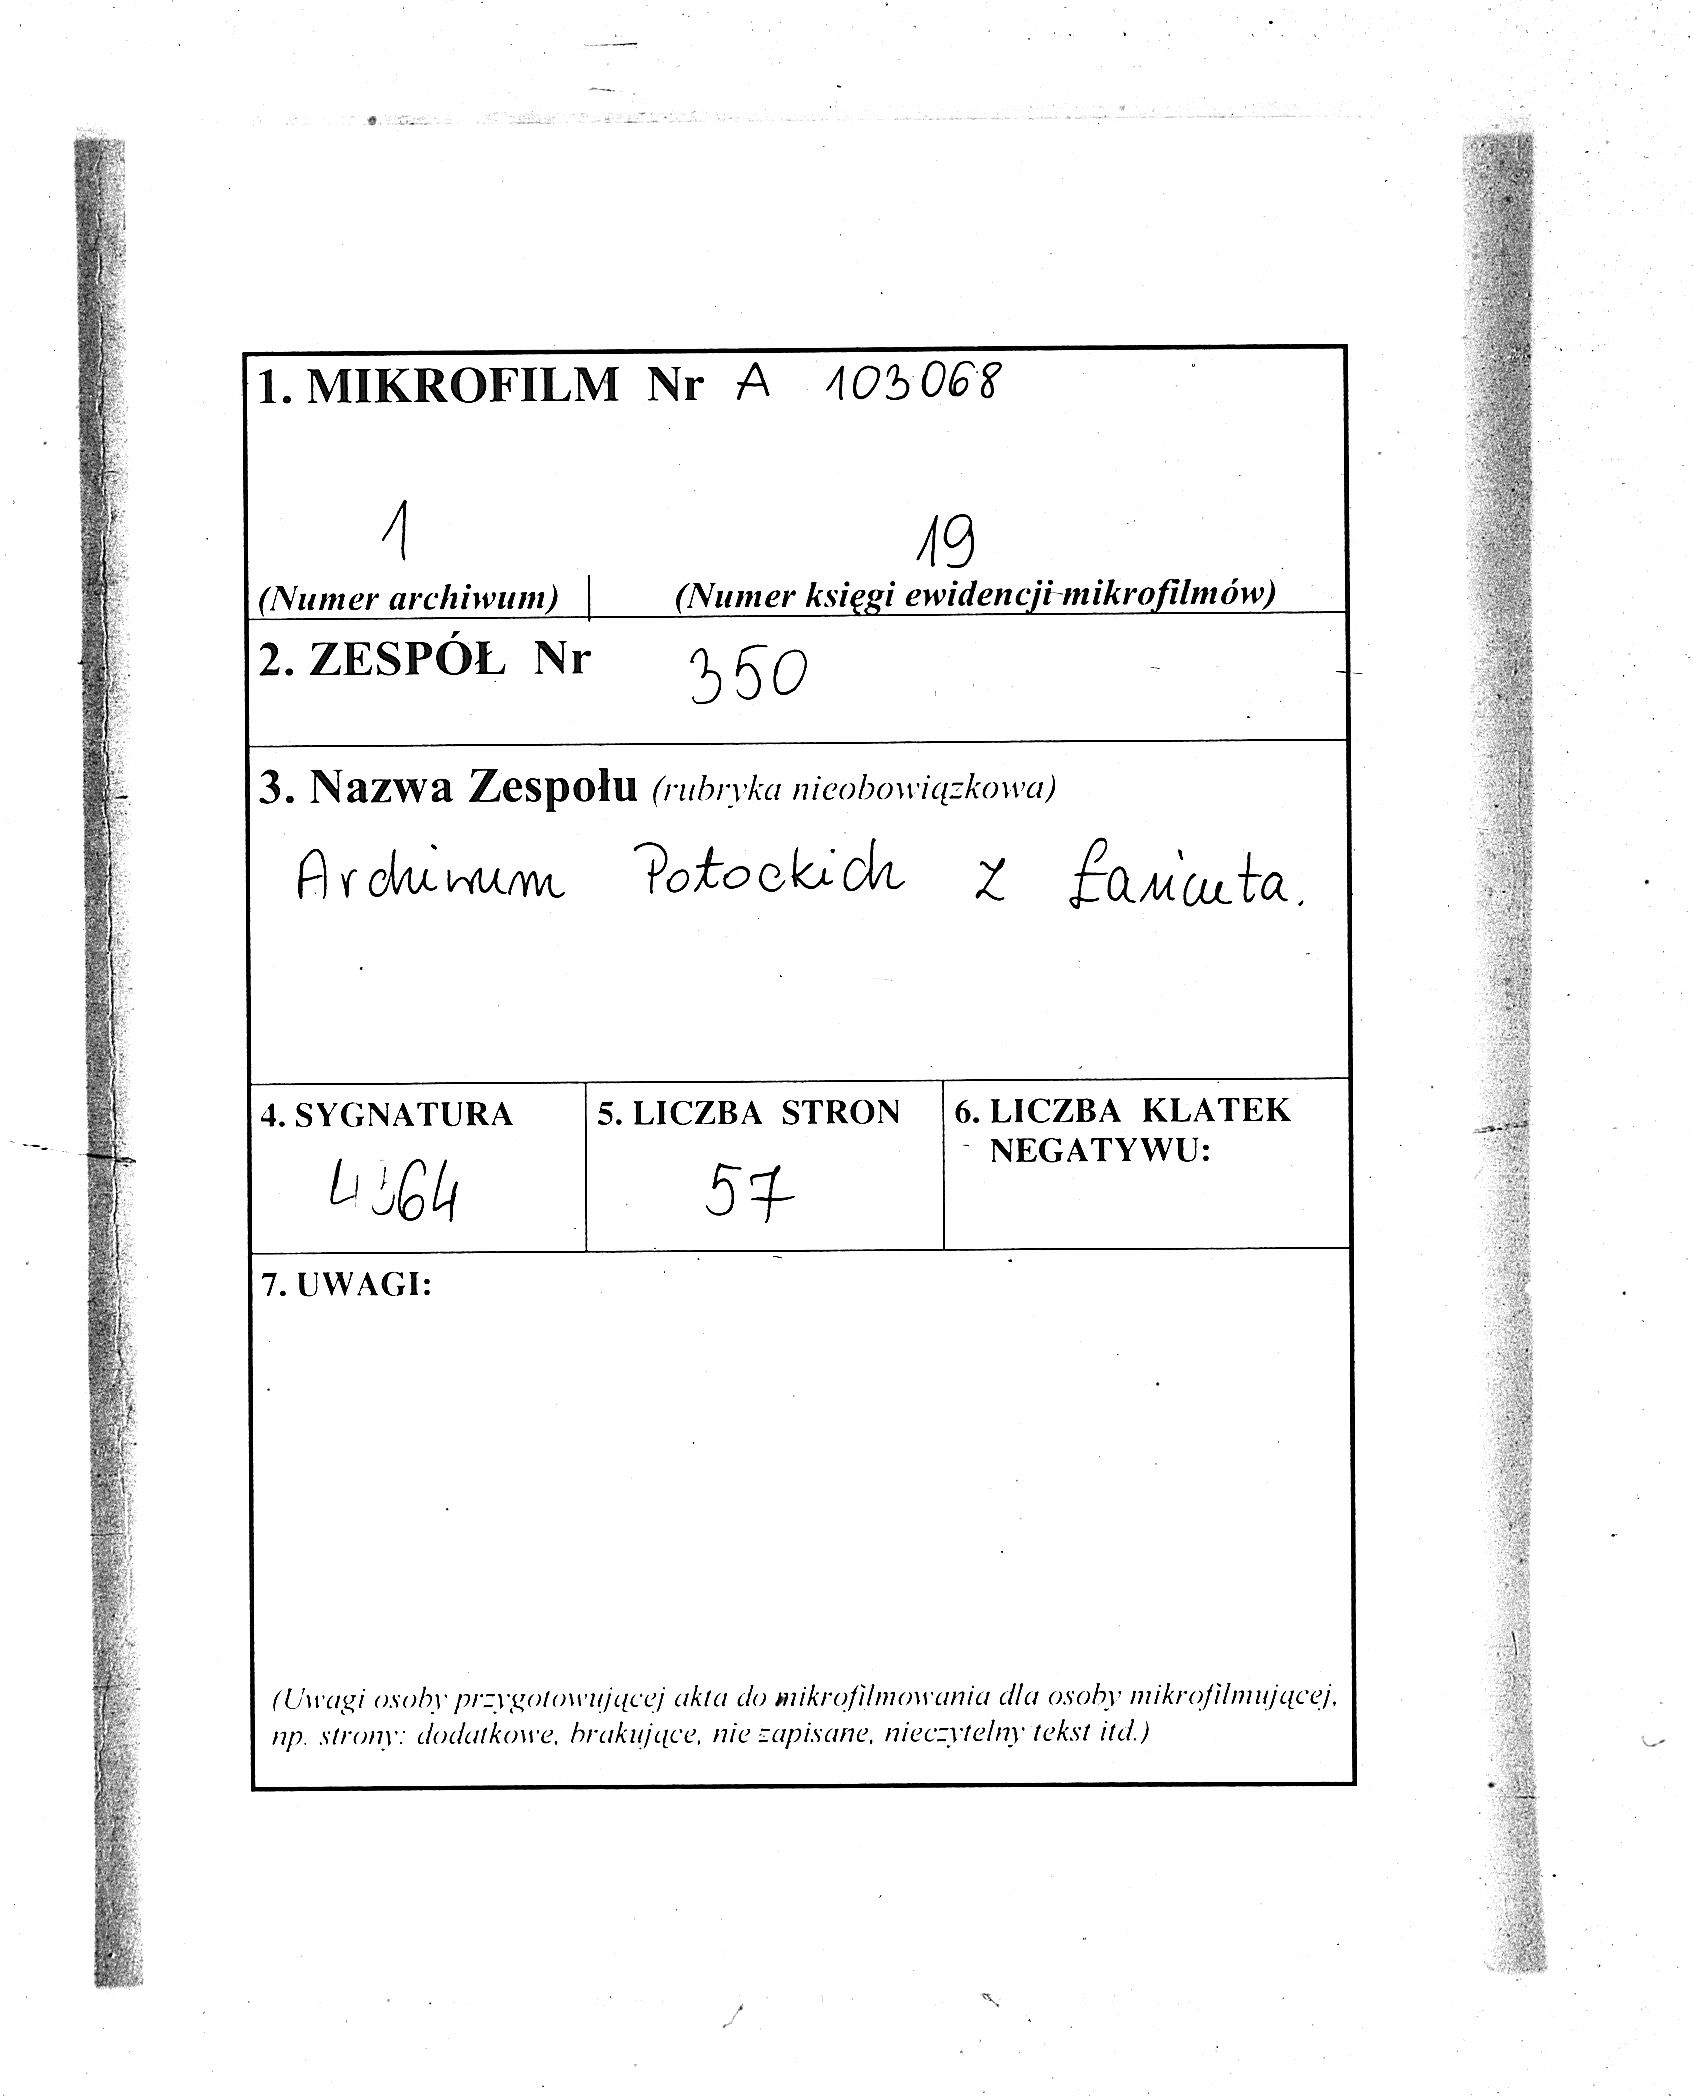 1. MIKROFILM Nr A 103068
1 19
(Numer archiwum) (Numer księgi ewidencji mikrofilmów)
2. ZESPÓŁ Nr 350
3. Nazwa Zespołu (rubryka nieobowiązkowa)
Archiwum Potockich z Łańcuta.
4. SYGNATURA 5. LICZBA STRON 6. LICZBA KLATEK
NEGATYWU:
57
7. UWAGI:
(Uwagi osoby przygotowującej akta do mikrofilmowania dla osoby mikrofilmującej,
np. strony: dodatkowe, brakujące, nie zapisane, nieczytelny tekst itd.)